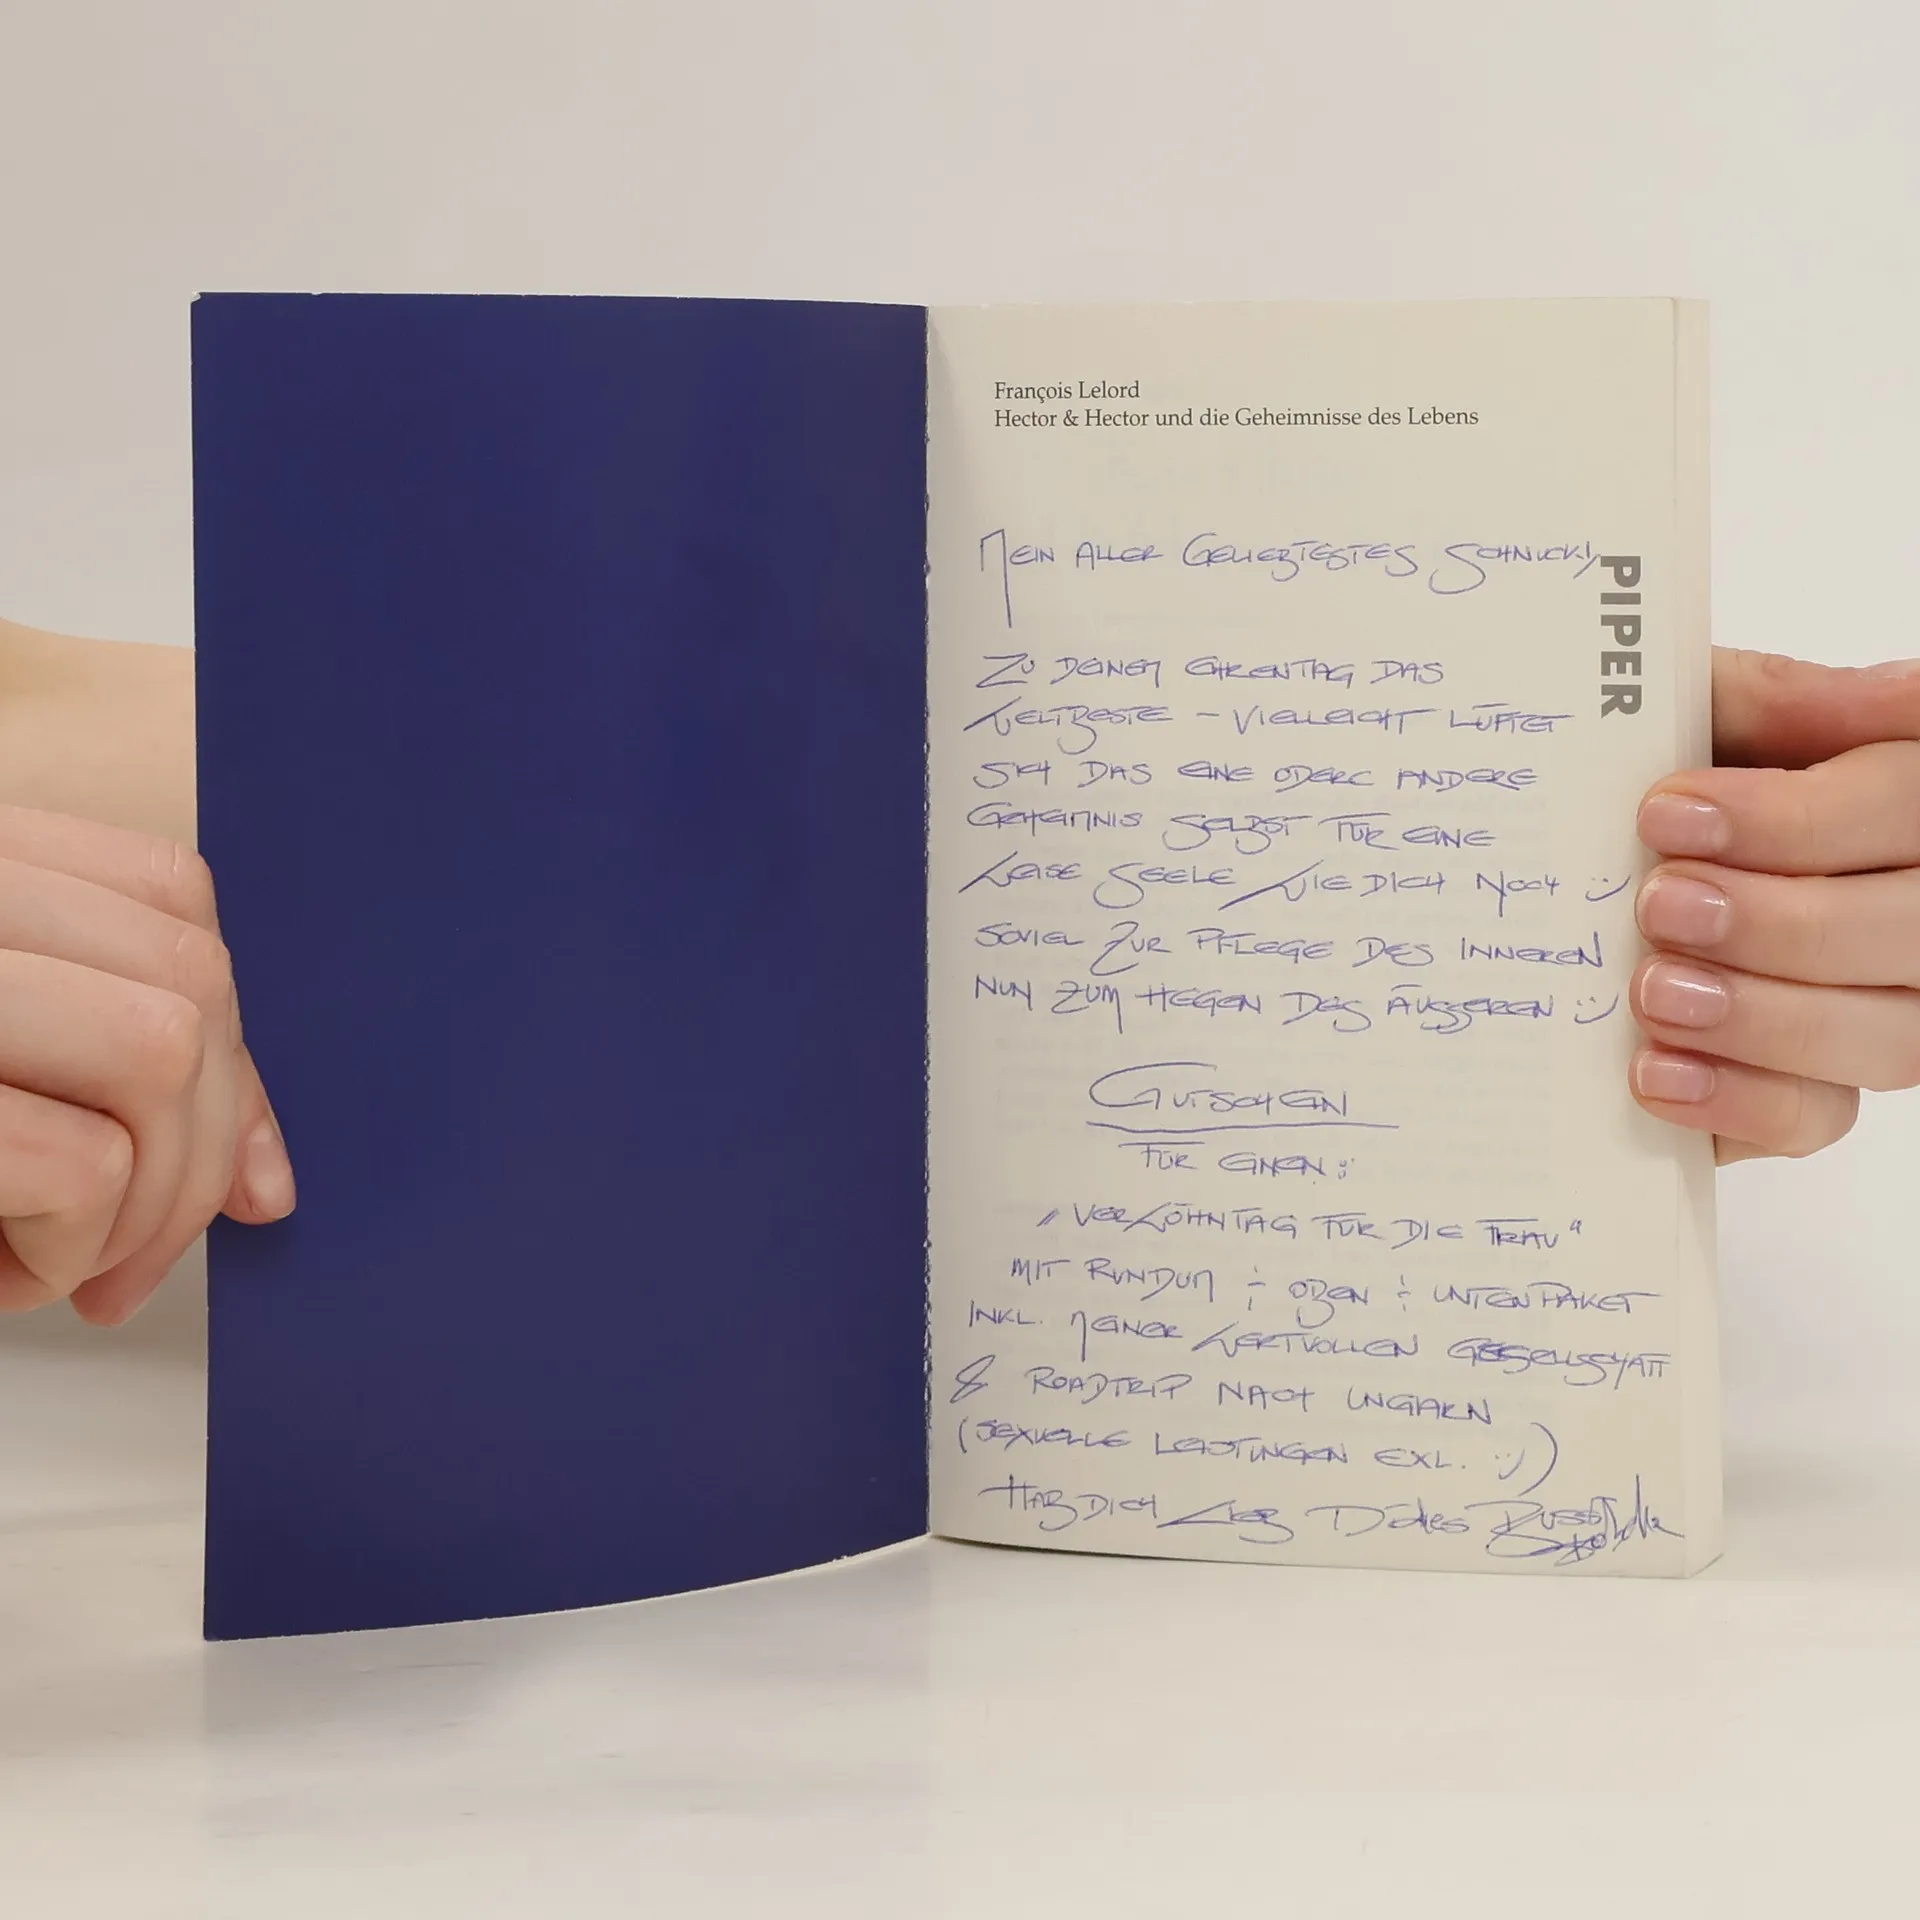 François Lelord
Hector & Hector und die Geheimnisse des Lebens
PIPER
MEIN ALLER GELIEBTESTES SCHNUCKI,
ZU DEINEM EHRENTAG DAS
WELTBESTE – VIELLEICHT LÜFTET
SICH DAS EINE ODER ANDERE
GEHEIMNIS SELBST FÜR EINE
WEISE SEELE WIE DICH NOCH :)
SOVIEL ZUR PFLEGE DES INNEREN
NUN ZUM HEGEN DES ÄUSSEREN :)
GUTSCHEIN
FÜR EINEN:
„VERWÖHNTAG FÜR DIE FRAU“
MIT RUNDUM + OBEN + UNTEN PAKET
INKL. MEINER WERTVOLLEN GESELLSCHAFT
& ROADTRIP NACH UNGARN
(SEXUELLE LEISTUNGEN EXL. :))
HAB DICH LIEB